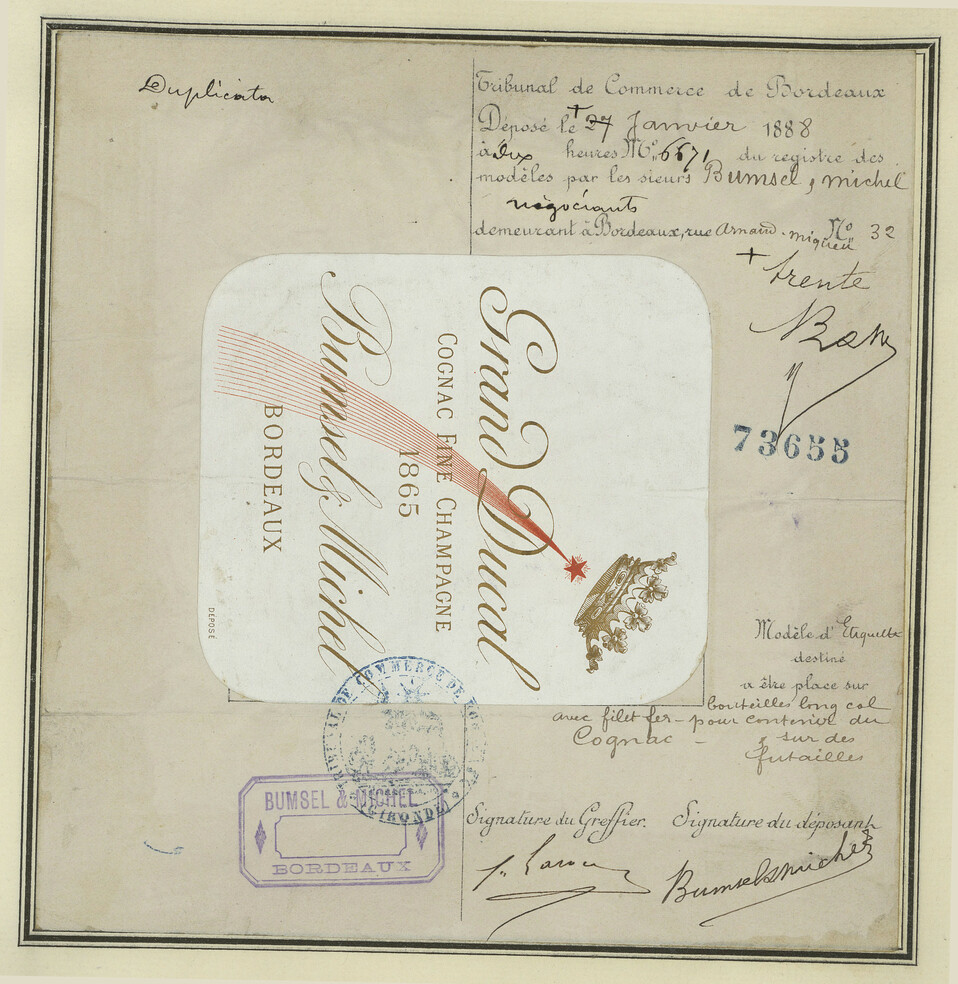 Duplicata
Tribunal de Commerce de Bordeaux
Déposé le + 27 Janvier 1888
à dix heures No. 6671 du registre des
modèles par les sieurs Bumsel & michel
négociants
demeurant à Bordeaux, rue Arnaud. miqueu No 32
+ trente
73655
Grand Ducal
COGNAC FINE CHAMPAGNE
1865
Bumsel & Michel
BORDEAUX
DÉPOSÉ
Modèle d'Etiquette
destiné
a être place sur
bouteilles long col
avec filet fer - pour contenir du
Cognac - & sur des
futailles
TRIBUNAL DE COMMERCE DE BORDEAUX
(GIRONDE)
BUMSEL & MICHEL
BORDEAUX
Signature du Greffier. Signature du déposant
Bumsel & michel